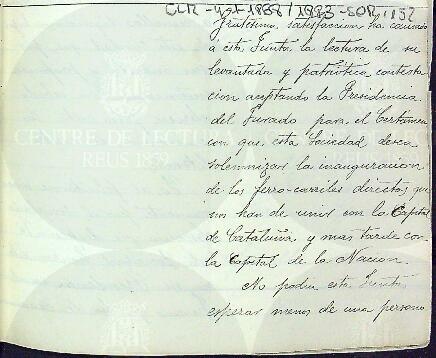 CLR-461-1838/1883-SOR, 1152
Gratisima satisfaccion ha causado
á esta Junta la lectura de su
levantada y patriótica contesta
cion aceptando la Presidencia
del Jurado para el Certámen
con que esta Sociedad desea
solemnizar la inauguracion
de los ferro-carriles directos que
nos han de unir con la Capital
de Cataluña y mas tarde con
la Capital de la Nacion.
No podia esta Junta
esperar menos de una persona
CENTRE DE LECTURA
REUS 1859